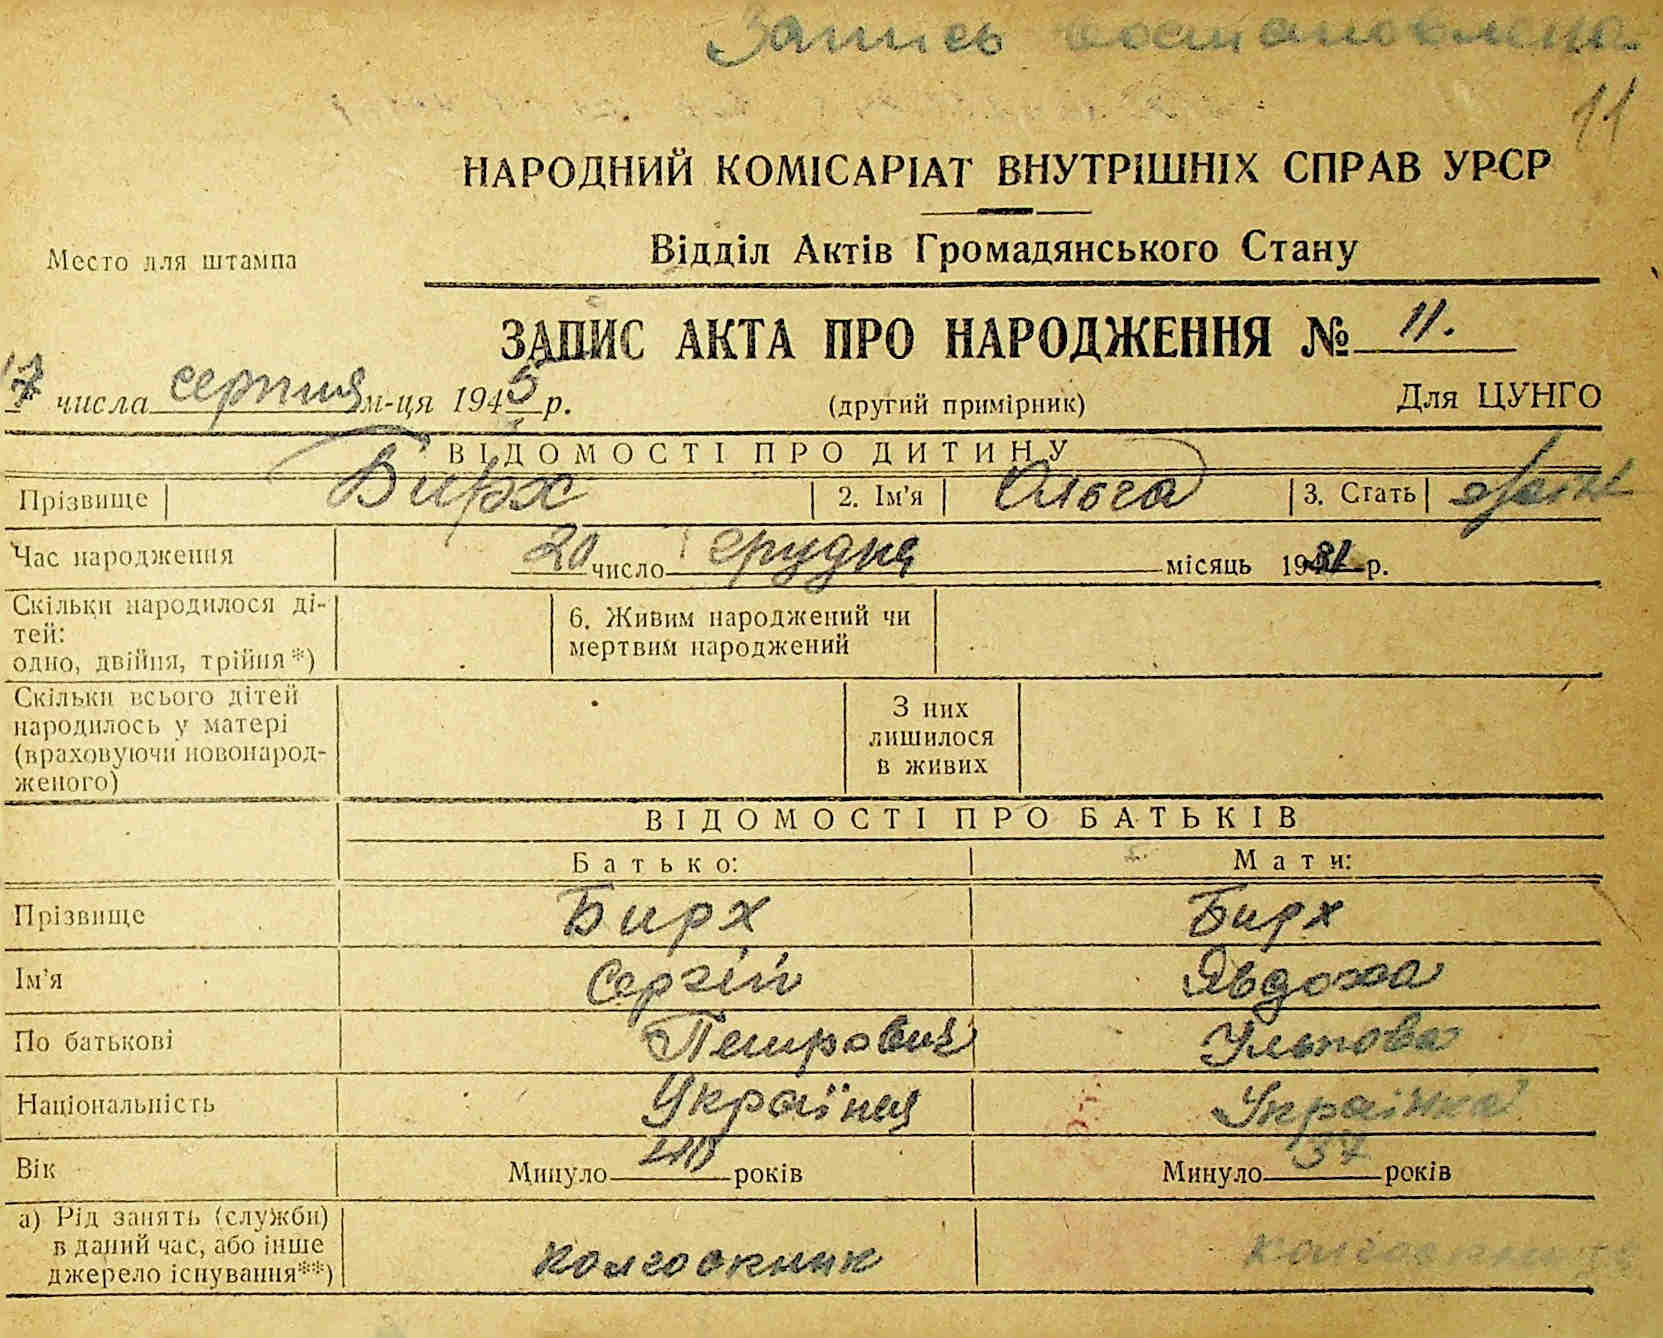 Запись востановлена
11
НАРОДНИЙ КОМІСАРІАТ ВНУТРІШНІХ СПРАВ УРСР
Место для штампа
Відділ Актів Громадянського Стану
ЗАПИС АКТА ПРО НАРОДЖЕННЯ № 11.
17 числа серпня м-ця 1945 р.
(другий примірник)
Для ЦУНГО
ВІДОМОСТІ ПРО ДИТИНУ
Прізвище Бирх 2. Ім'я Ольга 3. Стать
Час народження 20 число грудня місяць 1931 р.
Скільки народилося ді-
тей:
одно, двійня, трійня*)
6. Живим народжений чи
мертвим народжений
Скільки всього дітей
народилось у матері
(враховуючи новонарод-
женого)
З них
лишилося
в живих
ВІДОМОСТІ ПРО БАТЬКІВ
Батько: Мати:
Прізвище Бирх Бирх
Ім'я Сергій Явдоха
По батькові Петрович
Національність Українец Українка
Вік Минуло 40 років Минуло 37 років
а) Рід занять (служби)
в даний час, або інше
джерело існування**)
колгоспник колгоспниця